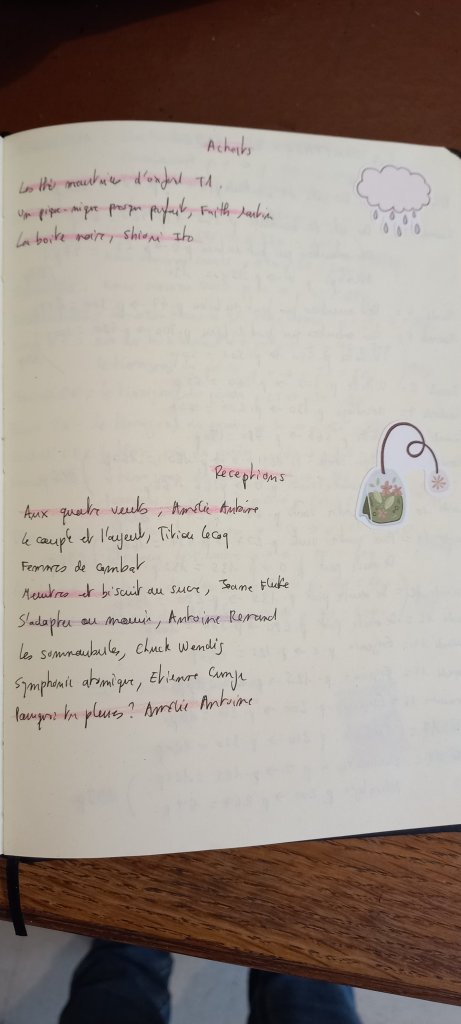 Achats
Les thés meurtriers d'oxford T1.
Un pique-nique presque parfait, Faith Martin
La boite noire, Shiori Ito
Receptions
Aux quatre vents, Amélie Antoine
Le couple et l'argent, Titiou Lecoq
Femmes de combat
Meurtres et biscuit au sucre, Joane Fluke
S'adapter ou mourir, Antoine Renand
Les somnambules, Chuck Wendig
Symphonie atomique, Etienne
Pourquoi tu pleures? Amélie Antoine